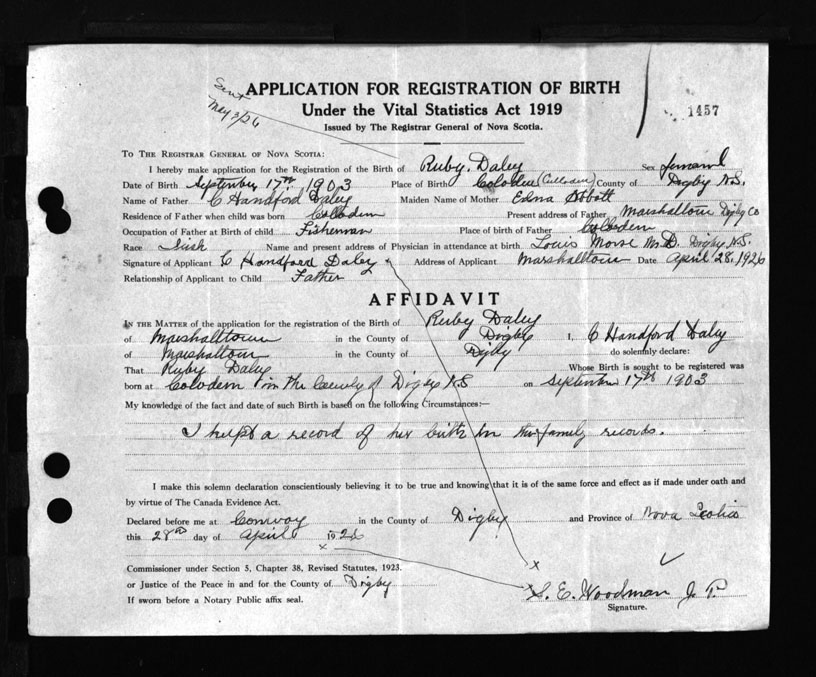 APPLICATION FOR REGISTRATION OF BIRTH
Sent May 3/26
Under the Vital Statistics Act 1919
1457
Issued by The Registrar General of Nova Scotia.
TO THE REGISTRAR GENERAL OF NOVA SCOTIA:
I hereby make application for the Registration of the Birth of Ruby Daley Sex
Date of Birth September 17th 1903 Place of Birth Coloden (Culloden) County of Digby N.S.
Name of Father C Handford Daley Maiden Name of Mother Edna
Residence of Father when child was born Coloden Present address of Father Marshalltown Digby Co
Occupation of Father at Birth of child Fisherman Place of birth of Father Coloden
Race Irish Name and present address of Physician in attendance at birth Louis Morse M.D. Digby N.S.
Signature of Applicant C Handford Daley Address of Applicant Marshalltown Date April 28, 1926
Relationship of Applicant to Child Father
AFFIDAVIT
IN THE MATTER of the application for the registration of the Birth of Ruby Daley
of Marshalltown in the County of Digby I, C Handford Daley
of Marshalltown in the County of Digby do solemnly declare:
That Ruby Daley Whose Birth is sought to be registered was
born at Colodem in the County of Digby N.S on September 17th 1903
My knowledge of the fact and date of such Birth is based on the following Circumstances:—
I kept a record of her birth in the family records.
I make this solemn declaration conscientiously believing it to be true and knowing that it is of the same force and effect as if made under oath and
by virtue of The Canada Evidence Act.
Declared before me at Conway in the County of Digby and Province of Nova Scotia
this 28th day of April 1926
x
Commissioner under Section 5, Chapter 38, Revised Statutes, 1923.
or Justice of the Peace in and for the County of Digby
x
x S. E. Woodman J. P.
If sworn before a Notary Public affix seal.
Signature.